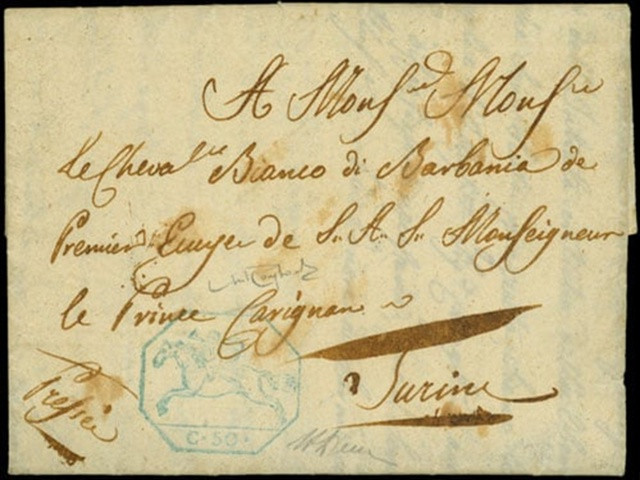 A Monsr Monsr
Le Chevalier Bianco di Barbania de
Premier Ecuyer de S. A. S. Monseigneur
le Prince Carignan
Turin
C. 50